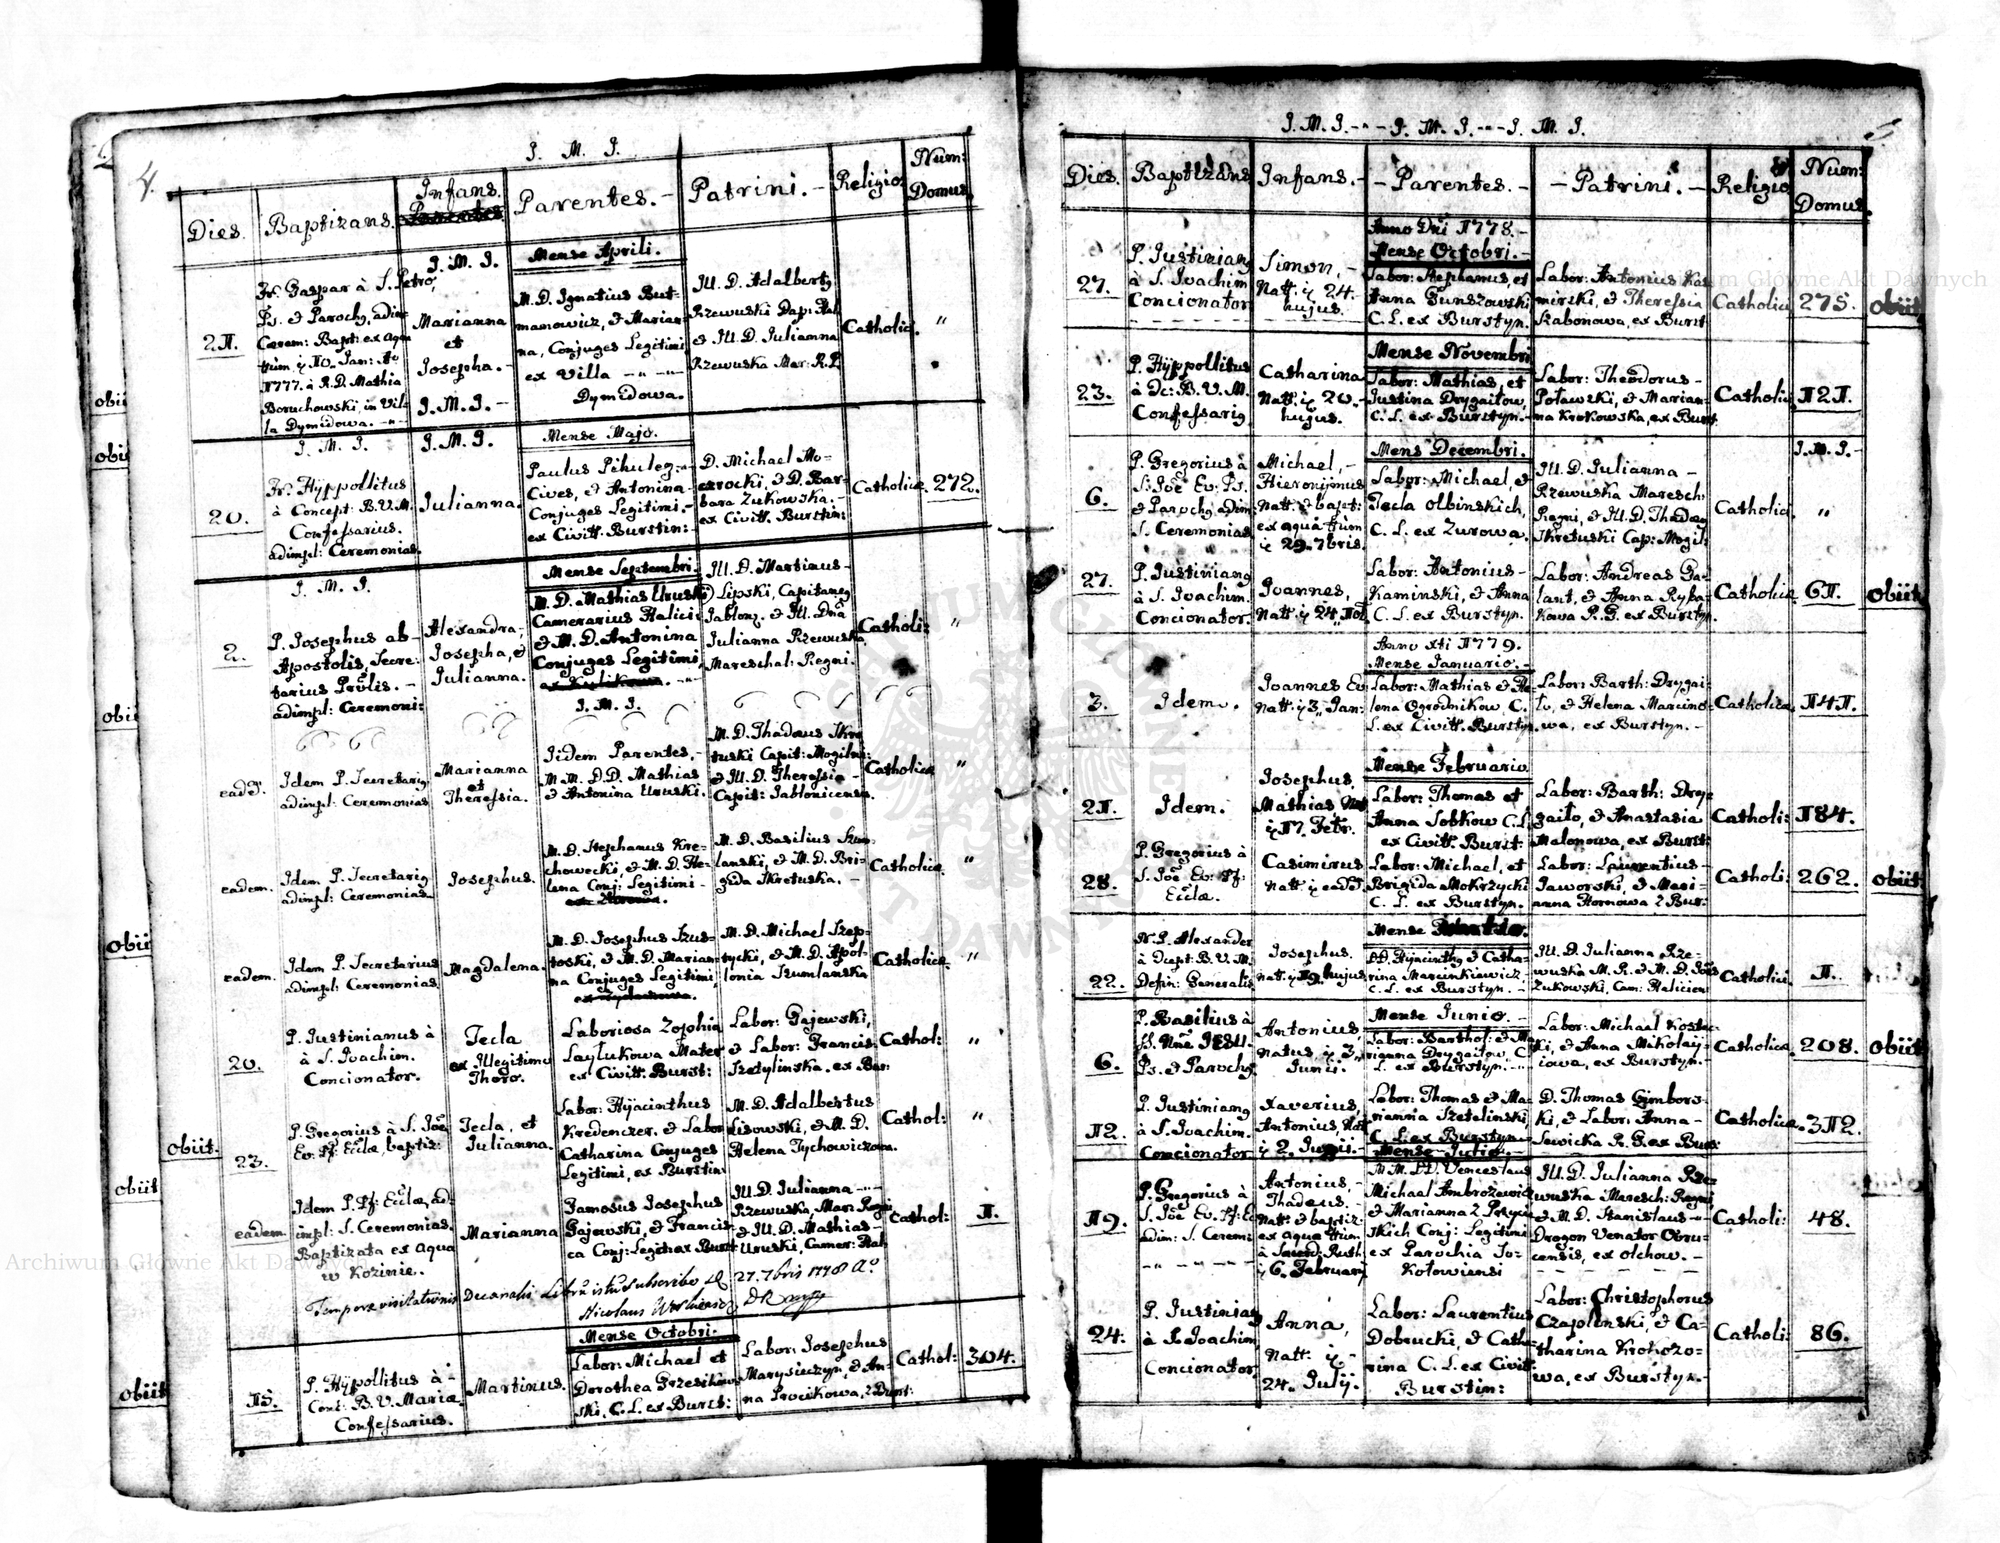 4.
J. M. J.
Dies. Baptizans. Infans. Parentes. Patrini. Religio. Num: Domus.
Mense Aprili.
21.
Fr. Gaspar à S. Petro,
Ps. et Parochg, adim:
Cærem: Bapt: ex Aqua
1777. à R. D. Mathia
Boruchowski, in Vil-
la Dymidowa.
J. M. J.
Marianna
et
Josepha.
J. M. J.
M. D. Ignatius But-
manowicz, et Marian-
na, Conjuges Legitimi
ex Villa
Dymidowa.
Ill. D. Adalbertg
Rzewuski Dap: Hal:
et Ill. D. Julianna
Rzewuska Mar: R. P.
Catholic.
"
Mense Majo.
20.
J. M. J.
Fr. Hÿppollitus
à Concept: B. V. M.
Confessarius.
adimpl: Ceremonias.
J. M. J.
Julianna.
Paulus Pikuleg:
Cives, et Antonina
Conjuges Legitimi.
ex Civitt. Burstin:
D. Michael Mo-
czrocki, et D. Bar-
bara Zukowska.
ex Civitt. Burstin:
Catholica.
272.
Mense Septembri.
2.
J. M. J.
P. Josephus ab
Apostolis, Secre-
tarius Prōlis.
adimpl: Ceremoni:
Alexandra,
Josepha, et
Julianna.
M. D. Mathias Uruski
Camerarius Halici:
et M. D. Antonina
Conjuges Legitimi,
J. M. J.
Ill. D. Martinus
Lipski, Capitaneg
Jablonz. et Ill. Dnā
Julianna Rzewuska
Mareschal: Regni.
Catholi:
"
eadē.
Idem P. Secretarig
adimpl: Ceremonias
Marianna
et
Theressia.
Iidem Parentes,
M. M. D. D. Mathias
et Antonina Uruski.
M. D. Thadæus Skre-
tuski Capit: Mogilni:
et Ill. D. Theressia
Capit: Jabloniccensis.
Catholica.
"
eadem.
Idem P. Secretarig
adimpl: Ceremonias
Josephus.
M. D. Stephanus Kre-
chowecki, et M. D. He-
lena Conj: Legitimi
M. D. Basilius Szum-
lanski, et M. D. Bri-
gida Skretuska.
Catholica.
"
eadem.
Idem P. Secretarius
adimpl: Ceremonias
Magdalena.
M. D. Josephus Szus-
toski, et M. D. Marian-
na Conjuges Legitimi,
M. D. Michael Szep-
tycki, et M. D. Apol-
lonia Szumlanska
Catholica.
"
20.
P. Justinianus à
à S. Joachim.
Concionator.
Tecla
ex Illegitimo
Thoro.
Laboriosa Zophia
Laytukowa Mater
ex Civitt. Burst:
Labor: Gajewski,
et Labor: Francis:
Szetylinska. ex Bur:
Cathol:
"
obiit.
23.
P. Gregorius à S. Joē
Ev. Pf: Ecclæ, baptiz:
Tecla, et
Julianna.
Labor: Hÿacinthus
Kredenczer, et Labor:
Catharina Conjuges
Legitimi, ex Burstin:
M. D. Adalbertus
Lisowski, et M. D.
Helena Tychowiczowa.
Cathol:
"
eadem.
Idem P. Pf: Ecclæ, ad-
impl: S. Ceremonias.
Baptizata ex Aqua
w Kozinie.
Marianna
Famosus Josephus
Gajewski, et Francis-
ca Conj: Legit: ex Burst:
Ill. D. Julianna
Rzewuska, Mar: Regni
et Ill. D. Mathias
Uruski, Camer: Hal:
Cathol:
II.
Tempore visitationis Decanalis Librū istū subscribo D. 27. 7bris 1778 Aº
Mense Octobri.
15.
P. Hÿppollitus à
Conc: B. V. Mariæ
Confessarius.
Martinus.
Labor: Michael et
Dorothea Grzesikow-
ski, C. L. ex Burst:
Labor: Josephus
Marysiczyn, et An-
na Procikowa, z Burst:
Cathol:
304.
obiit
obiit
obiit
obiit
obiit
5
J. M. J. - - J. M. J. - - J. M. J.
Dies. Baptizans Infans. Parentes. Patrini. Religio Num: Domus.
Anno Dni 1778.
Mense Octobri.
27.
P. Justiniang
à S. Joachim
Concionator
Simon,
Natt: ÿ 24.
hujus.
Labor: Stephanus, et
Anna Funszowski
C. L. ex Burstyn.
Labor: Antonius Kas-
mirski, et Theressia
Kabonowa, ex Burst
Catholica
275.
Obiit
Mense Novembri
23.
P. Hÿppollitus
à Cc: B. V. M.
Confessarig
Catharina
Natt: ÿ 20.
hujus.
Labor: Mathias, et
Justina Drygaitow,
C. L. ex Burstyn.
Labor: Theodorus
Potawski, et Marian-
na Krokowska, ex Burst
Catholic.
121.
Mens Decembri.
J. M. J.
6.
P. Gregorius à
S. Joē Ev: Ps.
et Parochg adim:
S. Ceremonias
Michael,
Hieronÿmus
Natt: et bapt:
ex aqua tum
ÿ 29. 7bris.
Labor: Michael, et
Tecla Olbinskich,
C. L. ex Zurowa.
Ill. D. Julianna
Rzewuska Maresch:
Regni, et Ill. D. Thadæg
Skretuski Cap: Mogil:
Catholic.
"
27.
P. Justiniang
à S. Joachim.
Concionator.
Joannes,
Natt: ÿ 24
Labor: Antonius
Kaminski, et Anna
C. L. ex Burstyn.
Labor: Andreas Ga-
lant, et Anna Rysza-
kowa R. G. ex Burstyn.
Catholica.
61.
obiit
Anno xti 1779.
Mense Januario.
3.
Idem.
Joannes Ev.
Natt: ÿ 3. Jan:
Labor: Mathias et He-
lena Ogrodnikow, C.
L. ex Civitt. Burstyn.
Labor: Barth: Drygai-
to, et Helena Marcino-
wa, ex Burstyn.
Catholica.
141.
Mense Februario
21.
Idem.
Josephus,
Mathias, Nat
ÿ 17. Febr.
Labor: Thomas et
Anna Sobkow C. L.
ex Civitt. Burst:
Labor: Barth: Dry-
gaito, et Anastasia
Malonowa, ex Burst:
Catholi:
184.
28.
P. Gregorius à
S. Joē Ev: Pf:
Ecclæ.
Casimirus
Natt: ÿ eadē.
Labor: Michael, et
Brigida Mokrzycki
C. L. ex Burstyn.
Labor: Laurentius
Jaworski, et Mari-
anna Hornowa z Bur:
Catholi:
262.
obiit
Mense
22.
N. P. Alexander
à Cupt: B. V. M.
Defin: Generalis
Josephus.
nat: ÿ 19. hujus
D. D. Hÿacinthg et Catha-
rina Marcinkiewicz
C. L. ex Burstyn.
Ill. D. Julianna Rze-
wuska M. R. et M. D. Joēs
Zukowski, Cam: Halicien:
Catholic:
II.
Mense Junio.
6.
P. Basilius à
SS. Nñe JESU.
Ps. et Parochg.
Antonius,
natus, ÿ 3.
Junii.
Labor: Barthol: et Ma-
rianna Drygaitow, C.
L. ex Burstyn.
Labor: Michael Kostec-
ki, et Anna Mikolay-
iowa, ex Burstyn.
Catholica.
208.
Obiit
12.
P. Justiniang
à S. Joachim.
Concionator
Xaverius,
Antonius, Nat
ÿ 2. Junii.
Labor: Thomas et Ma-
rianna Szetelinski,
C. L. ex Burstyn.
D. Thomas Gimbors-
ki, et Labor: Anna
Sawicka R. G. ex Burs:
Catholica.
312.
Mense Julio.
19.
P. Gregorius à
S. Joē Ev. Pf: E.
adim: S. Cerem:
Antonius,
Thadeus.
Natt: et baptiz:
ex aqua tum
ÿ 6. Februarij
M. M. DD. Venceslaus
Michael Ambrozewicz
et Marianna z
skich Conj: Legitimi
ex Parochia Jo-
kolowiensi
Ill. D. Julianna Rze-
wuska Maresch: Regni
et M. D. Stanislaus
Dragon Venator Ovru-
censis, ex Olchow.
Catholi:
48.
24.
P. Justiniang
à S. Joachim
Concionator
Anna,
Natt: ÿ
24. Julÿ.
Labor: Laurentius
Dobrucki, et Cathe-
rina C. L. ex Civitt.
Burstin:
Labor: Christophorus
Czaplinski, et Ca-
tharina Krokozo-
wa, ex Burstyn.
Catholi:
86.
Archiwum Główne Akt Dawnych